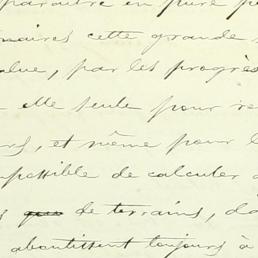 paraître en pure pe
naires cette grande
alue, par les progrès
elle seule pour re
rs, et même pour l
mpossible de calculer
s que de terrains, d
aboutissent toujours à